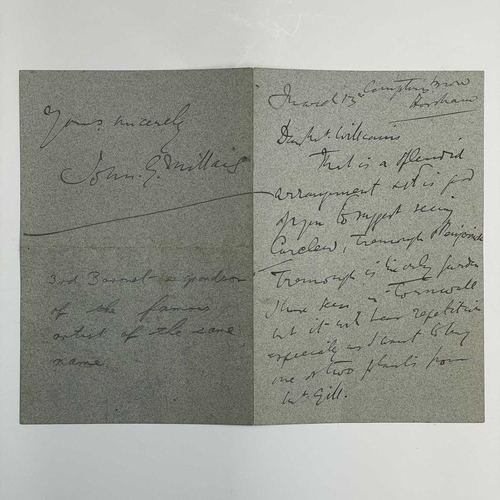 Yours sincerely
John. G. Millais
3rd Baronet - a grandson
of the famous
artist of the same
name
March 13th Compton's Brow
Horsham
Dear Mr. Williams
That is a splendid
arrangement & it is good
of you to suggest seeing
Caerleon, Tremough &
Tremough is the only garden
I have seen in Cornwall
but it will bear repetition
especially as I want to buy
one or two plants from
Mr. Gill.